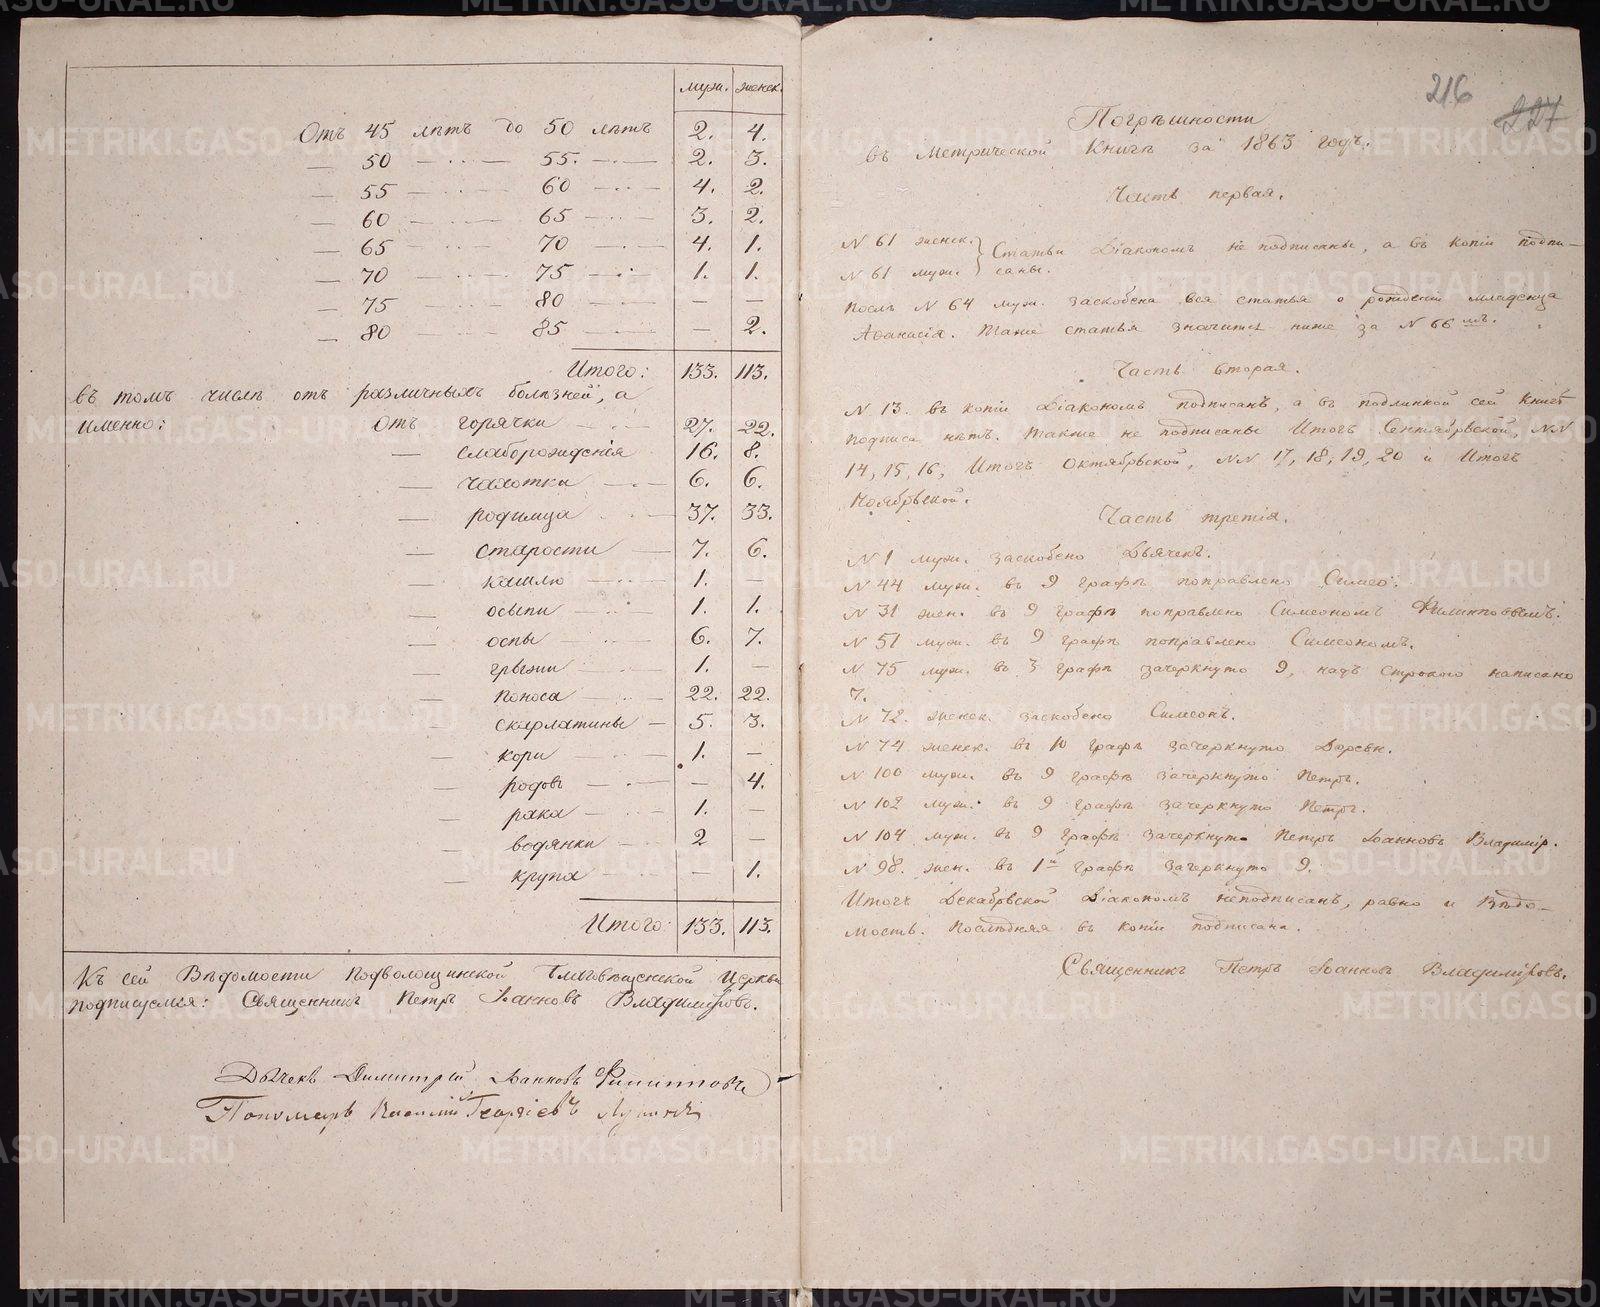 муж. женск.
Отъ 45 лѣтъ до 50 лѣтъ 2. 4.
— 50 — 55. — 2. 3.
— 55 — 60 — 4. 2.
— 60 — 65 — 3. 2.
— 65 — 70 — 4. 1.
— 70 — 75 — 1. 1.
— 75 — 80 — — —
— 80 — 85 — — 2.
Итого: 133. 113.
въ томъ числѣ отъ различныхъ болѣзней, а
именно: Отъ горячки — 27. 22.
— слаборожденія 16. 8.
— чахотки — 6. 6.
— родимца — 37. 33.
— старости — 7. 6.
— кашлю — 1. —
— осыпи — 1. 1.
— оспы — 6. 7.
— грыжи — 1. —
— поноса — 22. 22.
— скарлатины — 5. 3.
— кори — 1. —
— родовъ — — 4.
— рака — 1. —
— водянки — 2 —
— крупа — — 1.
Итого: 133. 113.
Къ сей Вѣдомости Подволошинской Благовѣщенской Церкви
подписуемся: Священникъ Петръ Іоанновъ Владиміровъ.
Дьячекъ Димитрій Іоанновъ Филипповъ
Пономарь Василій Георгіевъ
216
227
Погрѣшности
въ Метрической Книгѣ за 1863 годъ.
Часть первая.
N 61 женск. } Статьи Діакономъ не подписаны, а въ копіи подпи-
N 61 муж. } саны.
Послѣ N 64 муж. заскоблена вся статья о рожденіи младенца
Аѳанасія. Таже статья значится ниже за N 66 мъ.
Часть вторая.
N 13. въ копіи Діакономъ подписанъ, а въ подлинной сей книгѣ
подписа нѣтъ. Также не подписаны Итогъ Сентябрьской, NN
14, 15, 16, Итогъ Октябрьской, NN 17, 18, 19, 20 и Итогъ
Ноябрьской.
Часть третія.
N 1 муж. заскоблено Дьячекъ.
N 44 муж. въ 9 графѣ поправлено Симео.
N 31 жен. въ 9 графѣ поправлено Симеономъ Филипповымъ.
N 51 муж. въ 9 графѣ поправлено Симеономъ.
N 75 муж. въ 3 графѣ зачеркнуто 9, надъ строкою написано
7.
N 72. женск. заскоблено Симеонъ.
N 74 женск. въ 10 графѣ зачеркнуто Деревн.
N 100 муж. въ 9 графѣ зачеркнуто Петръ.
N 102 муж. въ 9 графѣ зачеркнуто Петръ.
N 104 муж. въ 9 графѣ зачеркнуто Петръ Іоанновъ Владимір.
N 98. жен. въ 1й графѣ зачеркнуто 9.
Итогъ Декабрьской Діакономъ неподписанъ, равно и Вѣдо-
мость. Послѣдняя въ копіи подписана.
Священникъ Петръ Іоанновъ Владиміровъ.
METRIKI.GASO-URAL.RU